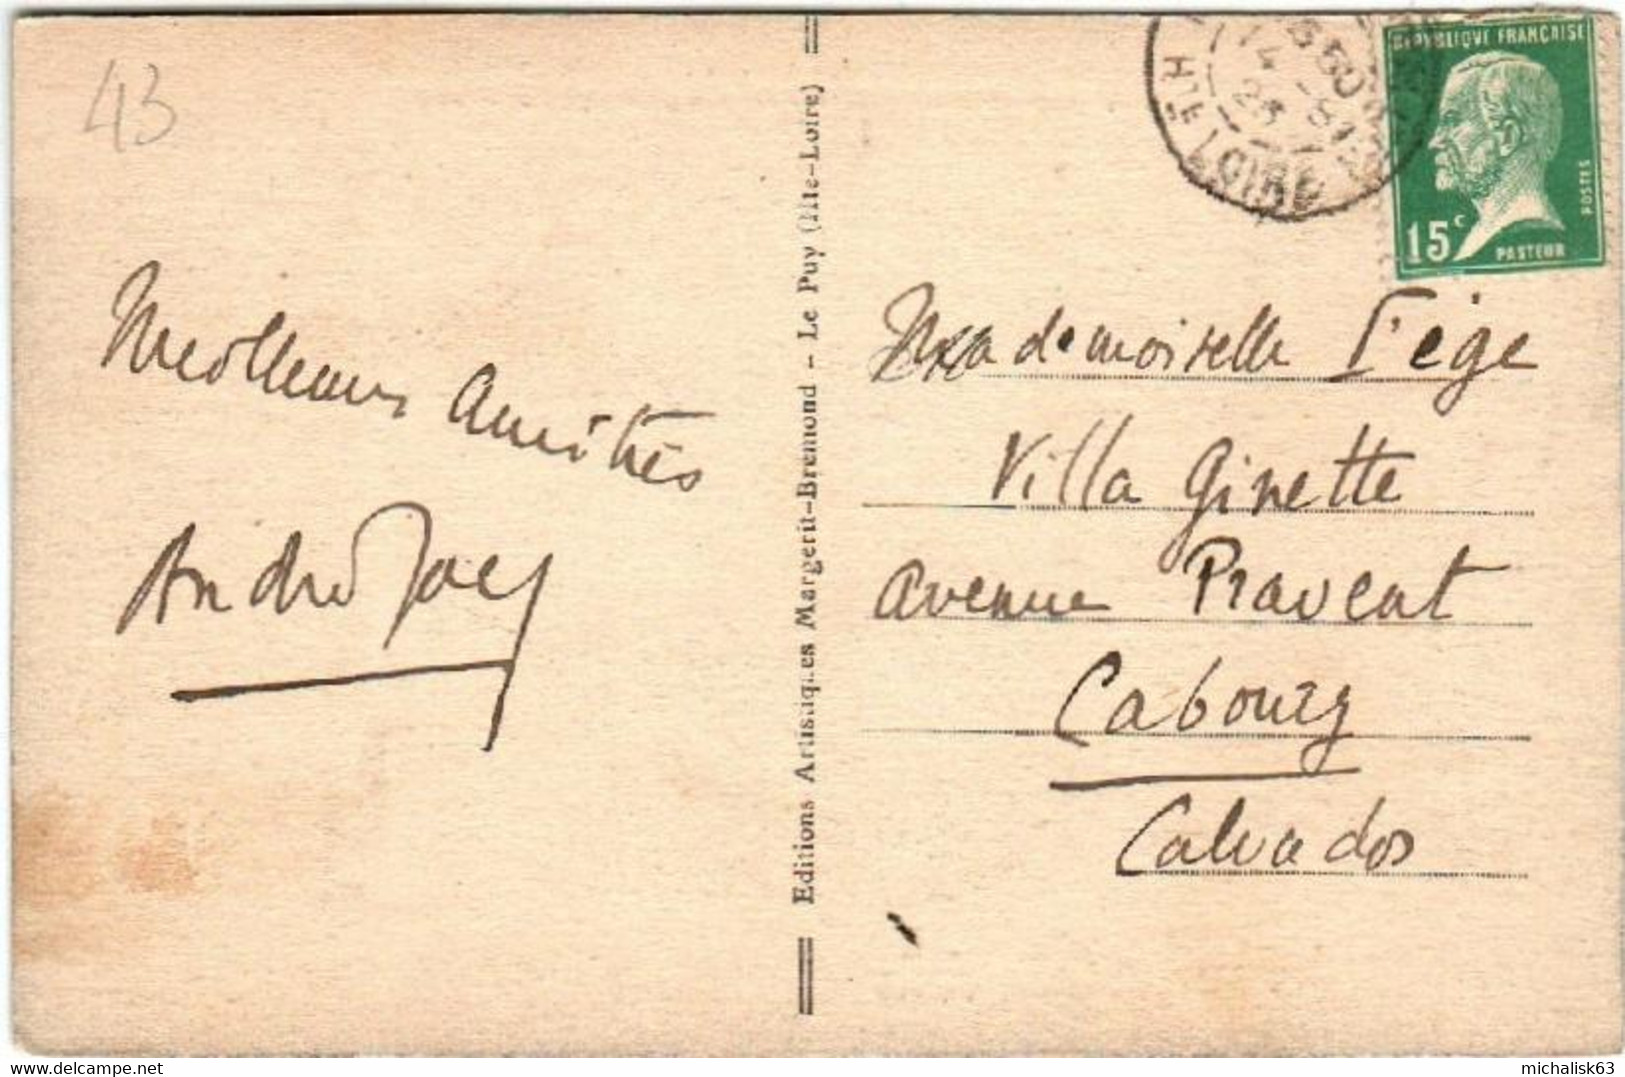 43
Meilleures Amitiés
André
Editions Artistiques Margerit-Bremond - Le Puy (Hte-Loire)
14 - 8
HTE LOIRE
REPUBLIQUE FRANÇAISE
POSTES
15c
PASTEUR
Mademoiselle Fège
Villa Ginette
avenue
Cabourg
Calvados
www.delcampe.net
michalisk63